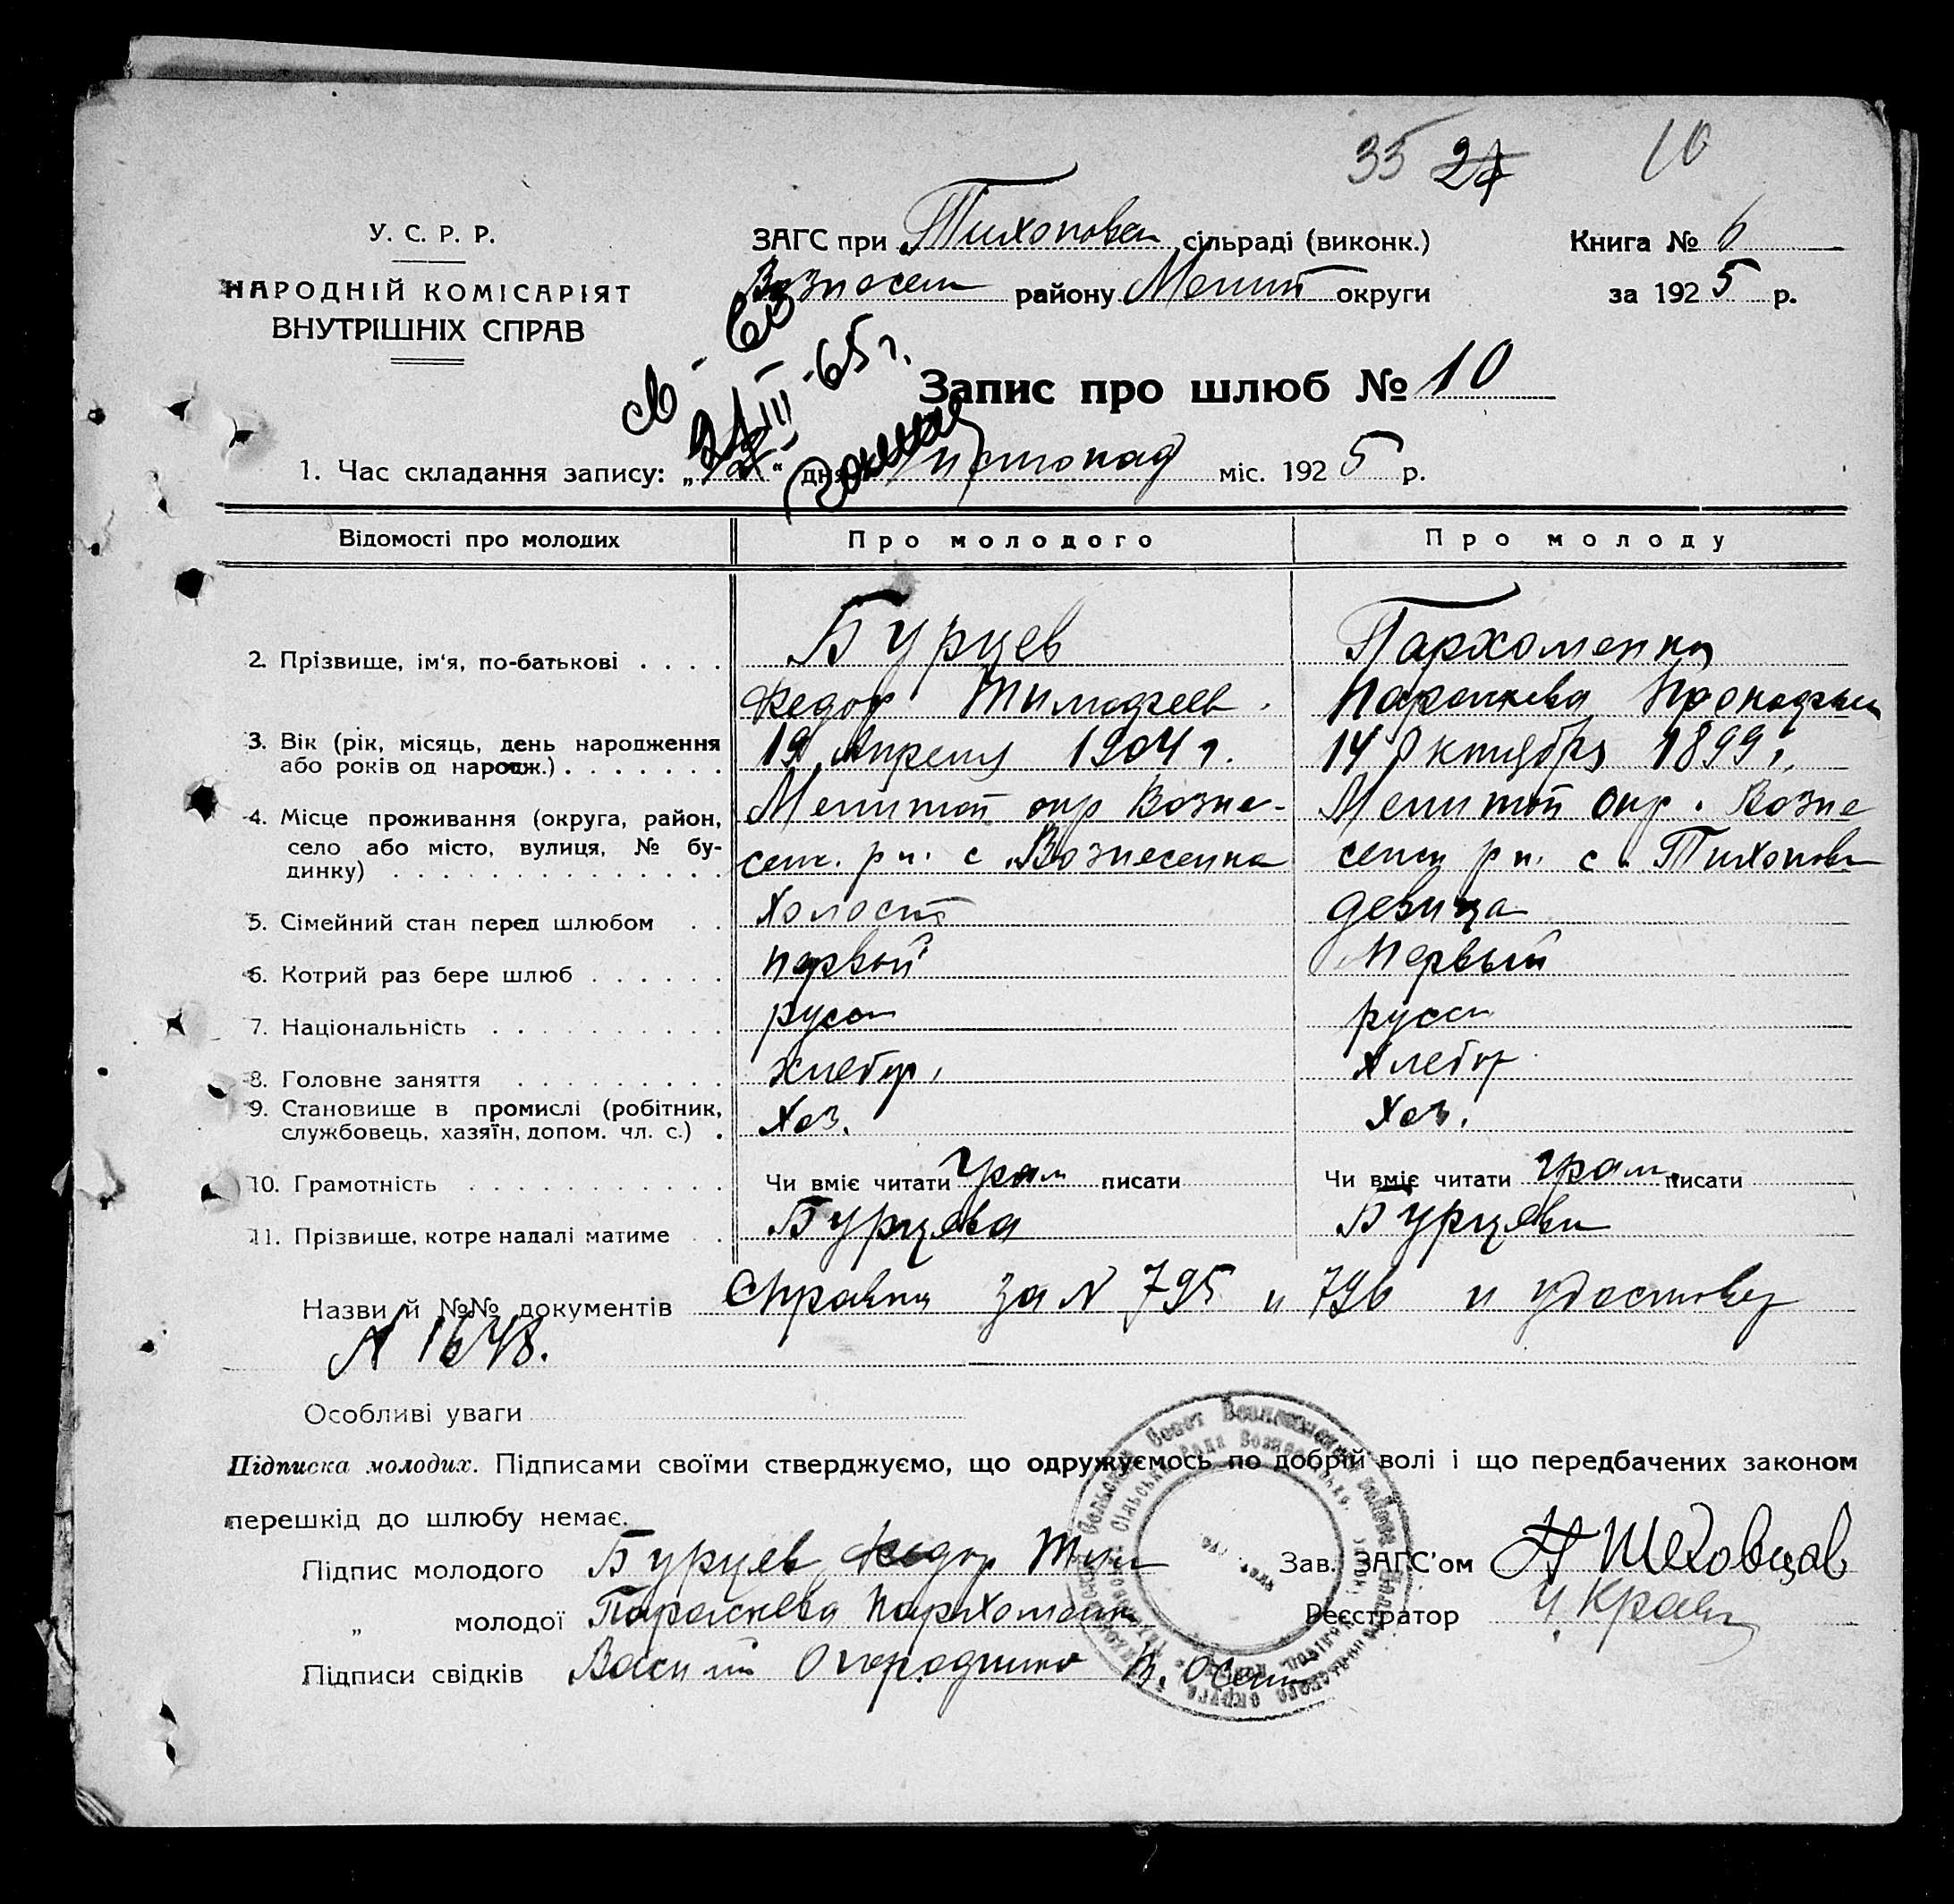 35 27 10
У. С. Р. Р.
НАРОДНІЙ КОМІСАРІЯТ
ВНУТРІШНІХ СПРАВ
ЗАГС при Тихоновск сільраді (виконк.)
Вознесен району Мелит округи
Книга № 6
за 1925 р.
Запис про шлюб № 10
III-65 г.
1. Час складання запису: „ “ дня листопад міс. 1925 р.
Відомості про молодих Про молодого Про молоду
2. Прізвище, ім'я, по-батькові . . . . Бурцев Пархоменко
Федор Тимофеев. Параскева
3. Вік (рік, місяць, день народження
або років од народж.) . . . . . . . 19 Апреля 1904 г. 14 Октября 1899 г.
4. Місце проживання (округа, район,
село або місто, вулиця, № бу-
динку) . . . . . . . . . . . . . .
Мелитоп окр Возне- Мелитоп окр. Возне
сенс. рн. с. Вознесенка сенск рн. с. Тихоновк
5. Сімейний стан перед шлюбом . . Холост девица
6. Котрий раз бере шлюб . . . . . . первый Первый
7. Національність . . . . . . . . . . русск русск
8. Головне заняття . . . . . . . . . хлебор. хлебор
9. Становище в промислі (робітник,
службовець, хазяїн, допом. чл. с.) . Хоз. Хоз.
10. Грамотність . . . . . . . . . . . Чи вміє читати грам писати Чи вміє читати грам. писати
11. Прізвище, котре надалі матиме . . Бурцева Бурцева
Назви й №№ документів Справки за N 795 и 796 и удостовер
N 1648.
Особливі уваги
Підписка молодих. Підписами своїми стверджуємо, що одружуємось по добрій волі і що передбачених законом
перешкід до шлюбу немає.
Підпис молодого Бурцев Федор Тим
Зав. ЗАГС'ом Н Шеховцов
„ молодої Параскева Пархоменко
Реєстратор Кравц
Підписи свідків Василий Огородник